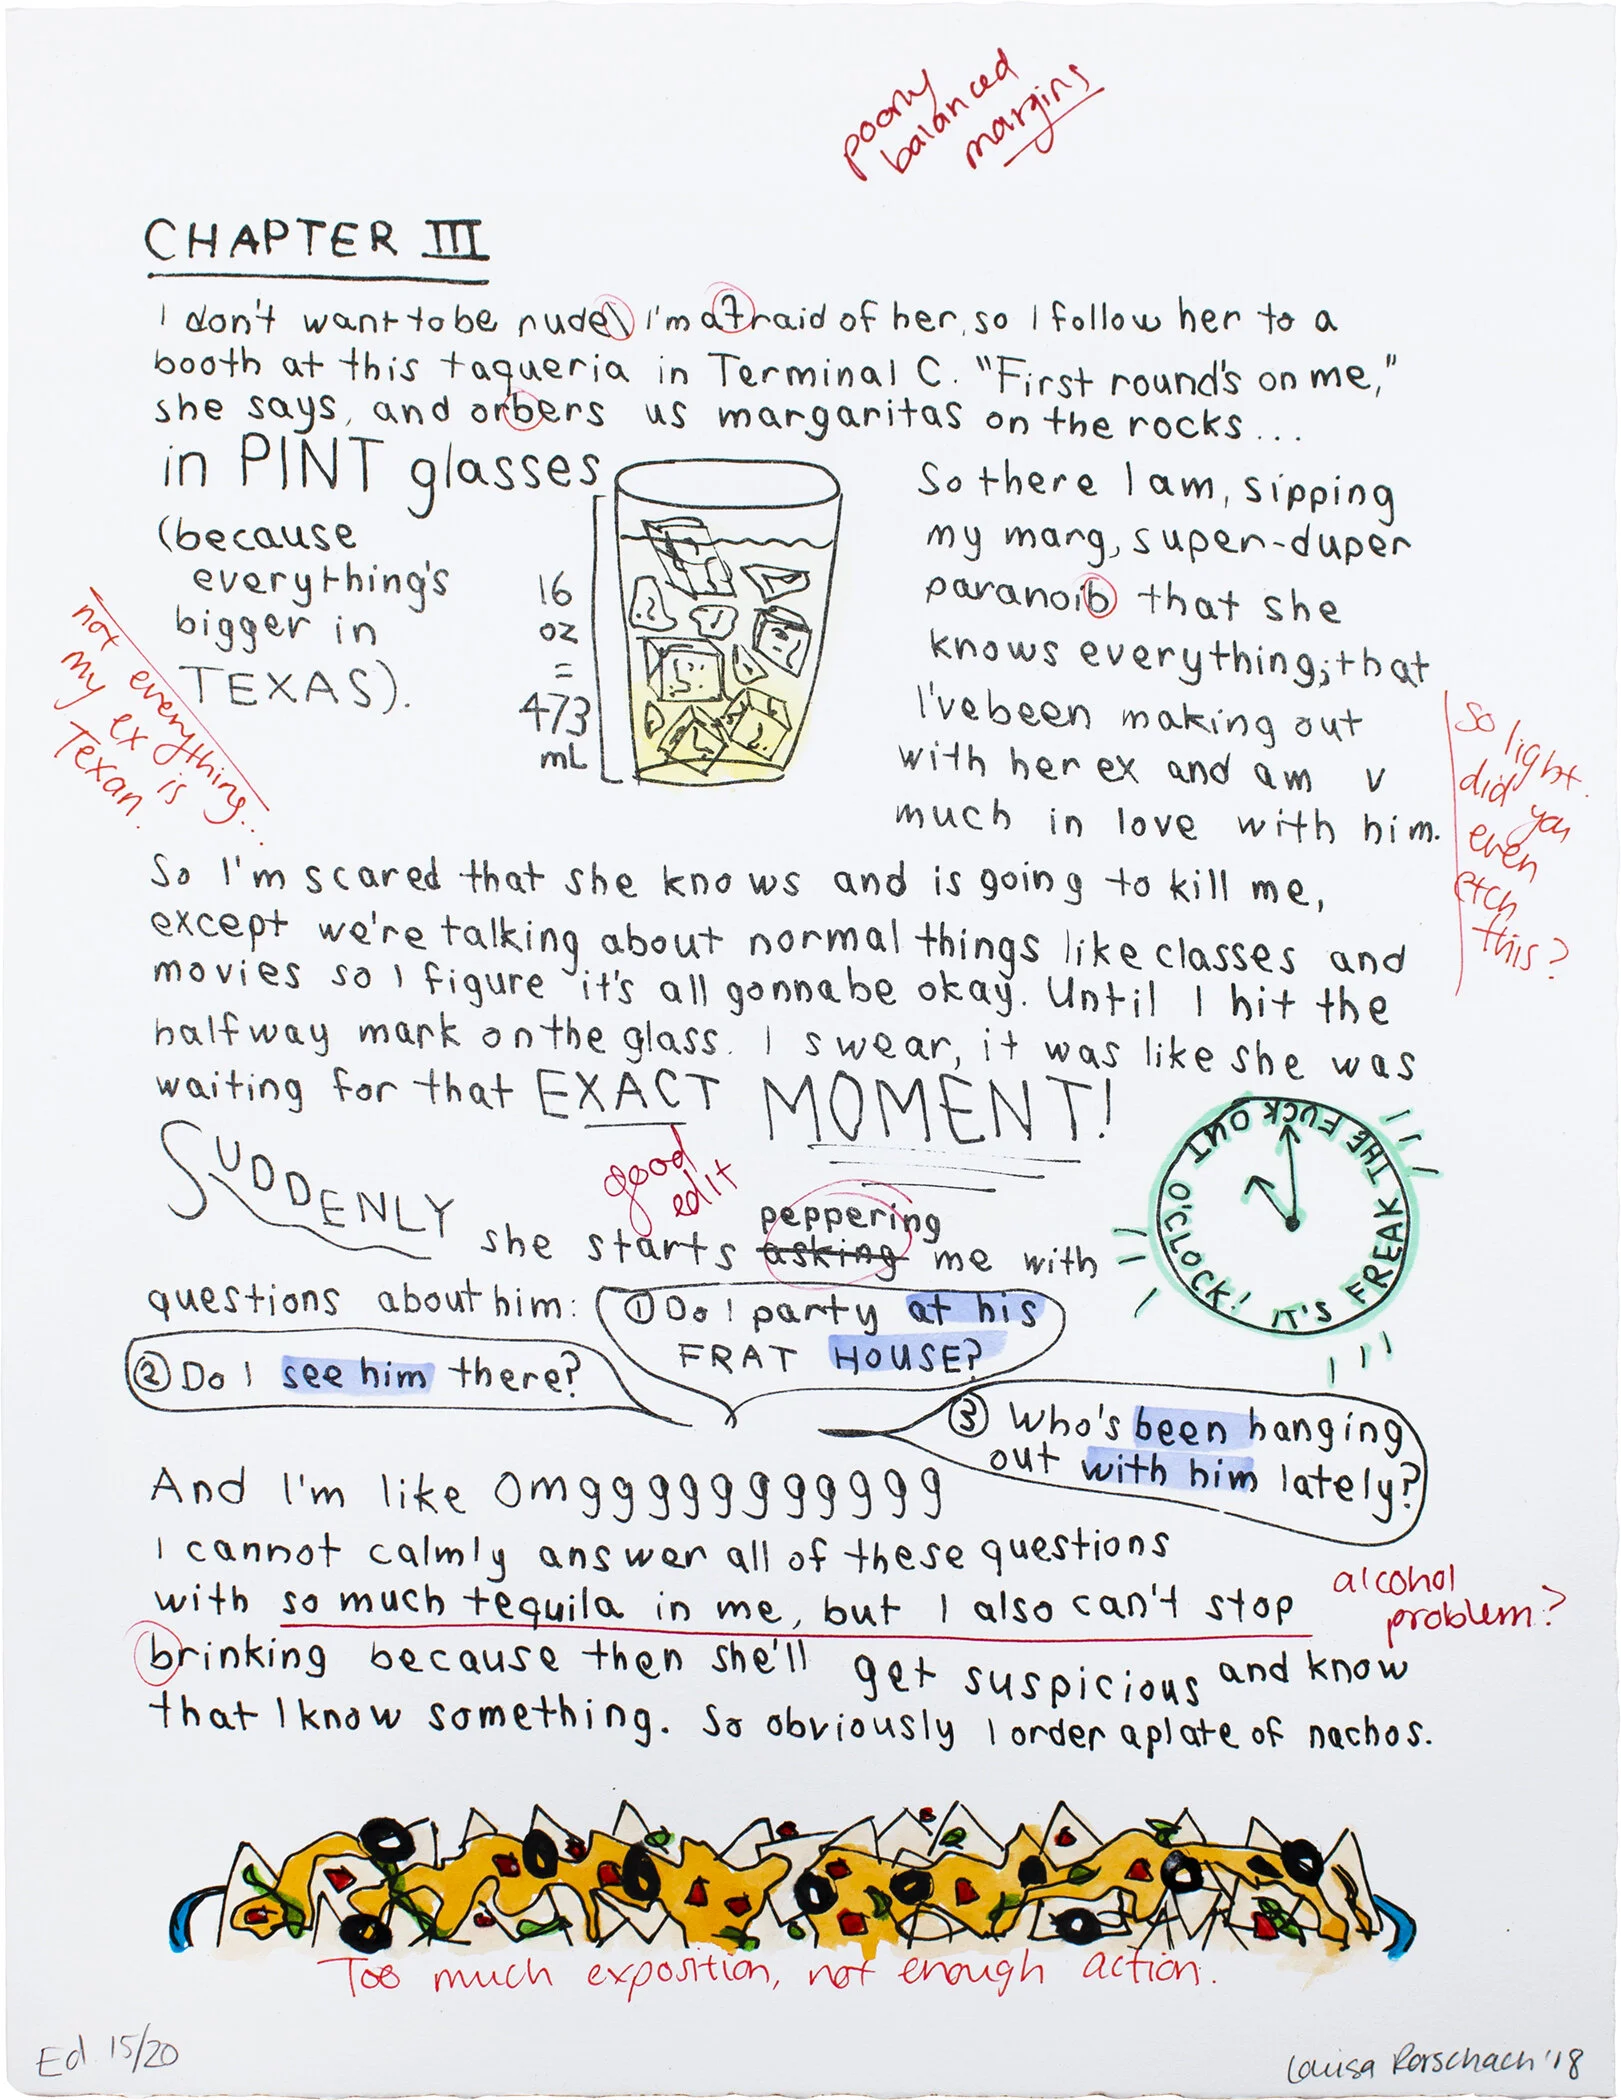 poorly
balanced
margins
CHAPTER III
I don't want to be nude\ I'm afraid of her, so I follow her to a
booth at this taqueria in Terminal C. "First round's on me,"
she says, and orbers us margaritas on the rocks...
in PINT glasses
(because
everything's
bigger in
TEXAS).
not everything...
my ex is
Texan.
16
oz
=
473
mL
So there I am, sipping
my marg, super-duper
paranoib that she
knows everything; that
I've been making out
with her ex and am v
much in love with him.
so light.
did you
even
etch
this?
So I'm scared that she knows and is going to kill me,
except we're talking about normal things like classes and
movies so I figure it's all gonna be okay. Until I hit the
halfway mark on the glass. I swear, it was like she was
waiting for that EXACT MOMENT!
IT'S FREAK THE FUCK OUT O'CLOCK!
good
edit
peppering
SUDDENLY she starts asking me with
questions about him:
① Do I party at his
FRAT HOUSE?
② Do I see him there?
③ Who's been hanging
out with him lately?
And I'm like Omggggggggggg
I cannot calmly answer all of these questions
with so much tequila in me, but I also can't stop
alcohol
problem?
brinking because then she'll get suspicious and know
that I know something. So obviously I order a plate of nachos.
Too much exposition, not enough action.
Ed 15/20
Louisa Rorschach '18